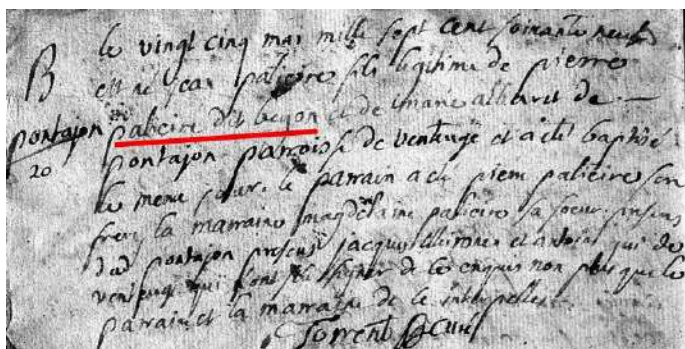 B
pontajon
20
le vingt cinq mai mille sept cent soixante neuf
est né jean paliere fils legitime de pierre
paliere dit beyon et de marie alberet de
pontajon paroisse de venteuge et a ete baptisé
le meme jour. le parrain a ete pierre paliere son
frere la marraine magdelaine paliere sa soeur
dud pontajon presens jacques et antoine qui de
venteuge qui n'ont sçu signer de ce enquis non plus que le
parrain et la marraine de ce interpelles
Torrent curé